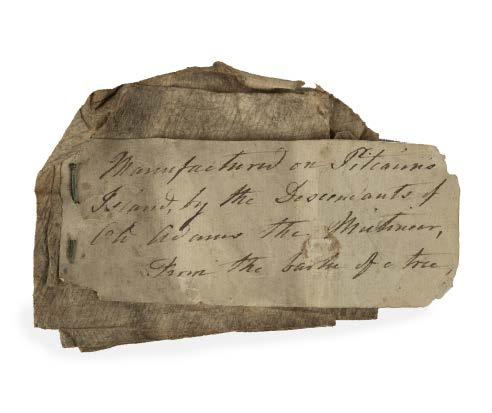 Manufactured on Pitcairn's
Island, by the Descendants of
Adams the Mutineer,
From the barke of a tree,